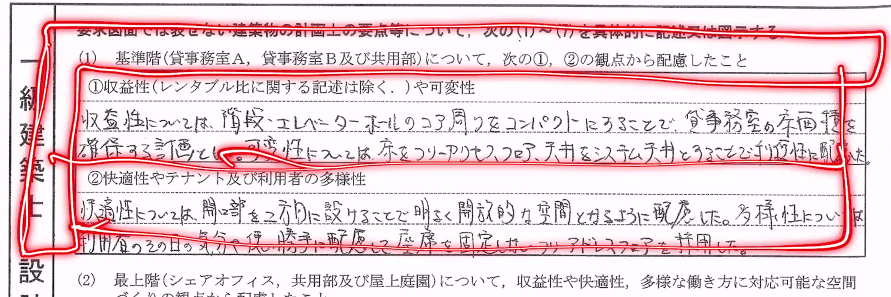 要求図面では表せない建築物の計画上の要点等について，次の(1)～(7)を具体的に記述又は図示する．
(1) 基準階(貸事務室A，貸事務室B及び共用部)について，次の①，②の観点から配慮したこと
①収益性(レンタブル比に関する記述は除く．)や可変性
収益性については、階段・エレベーターホールのコア周りをコンパクトにすることで貸事務室の床面積を
確保する計画とし、可変性については、床をフリーアクセスフロア、天井をシステム天井とすることで利便性に配慮した。
②快適性やテナント及び利用者の多様性
快適性については、開口部を二方向に設けることで明るく開放的な空間となるように配慮した。多様性については
利用者のその日の気分や使い勝手に配慮して座席を固定しないフリーアドレスフロアを採用した。
(2) 最上階(シェアオフィス，共用部及び屋上庭園)について，収益性や快適性，多様な働き方に対応可能な空間
づくりの観点から配慮したこと
一級建築士 設計